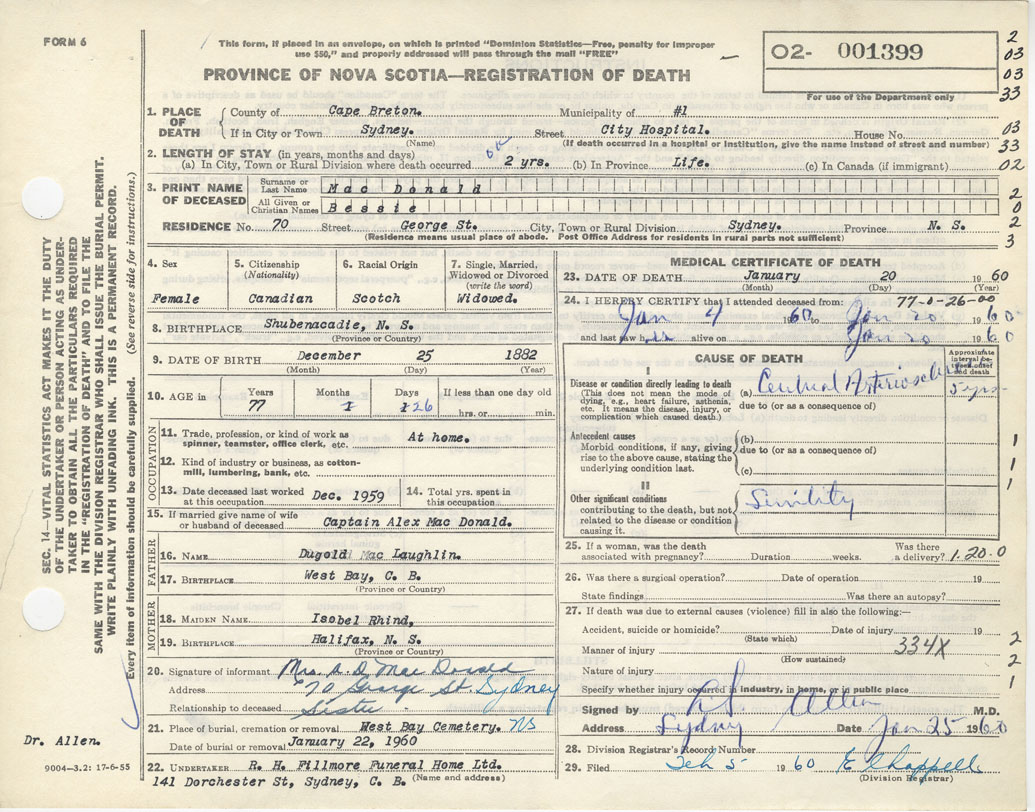 FORM 6
This form, if placed in an envelope, on which is printed "Dominion Statistics—Free, penalty for improper
use $50," and properly addressed will pass through the mail "FREE"
O2- 001399
For use of the Department only
PROVINCE OF NOVA SCOTIA—REGISTRATION OF DEATH
2
03
03
33
03
33
02
2
0
2
3
1. PLACE OF DEATH
County of Cape Breton. Municipality of #1
If in City or Town Sydney. Street City Hospital. House No.
(Name) (If death occurred in a hospital or institution, give the name instead of street and number)
2. LENGTH OF STAY (in years, months and days)
(a) In City, Town or Rural Division where death occurred 2 yrs. (b) In Province Life. (c) In Canada (if immigrant)
3. PRINT NAME OF DECEASED
Surname or Last Name Mac Donald
All Given or Christian Names Bessie
RESIDENCE No. 70 Street George St. City, Town or Rural Division Sydney. Province N. S.
(Residence means usual place of abode. Post Office Address for residents in rural parts not sufficient)
4. Sex Female
5. Citizenship (Nationality) Canadian
6. Racial Origin Scotch
7. Single, Married, Widowed or Divorced (write the word) Widowed.
8. BIRTHPLACE Shubenacadie, N. S.
(Province or Country)
9. DATE OF BIRTH December 25 1882
(Month) (Day) (Year)
10. AGE in Years 77 Months 1 Days 26 If less than one day old hrs. or min.
OCCUPATION
11. Trade, profession, or kind of work as spinner, teamster, office clerk, etc. At home.
12. Kind of industry or business, as cotton-mill, lumbering, bank, etc.
13. Date deceased last worked at this occupation Dec. 1959
14. Total yrs. spent in this occupation
15. If married give name of wife or husband of deceased Captain Alex Mac Donald.
FATHER
16. NAME Dugold Mac Laughlin.
17. BIRTHPLACE West Bay, C. B.
(Province or Country)
MOTHER
18. MAIDEN NAME Isobel Rhind,
19. BIRTHPLACE Halifax, N. S.
(Province or Country)
20. Signature of informant Mrs. A. D. Mac Donald
Address 70 George St. Sydney
Relationship to deceased Sister.
21. Place of burial, cremation or removal West Bay Cemetery. NS
Date of burial or removal January 22, 1960
22. UNDERTAKER R. H. Fillmore Funeral Home Ltd.
141 Dorchester St, Sydney, C. B. (Name and address)
MEDICAL CERTIFICATE OF DEATH
23. DATE OF DEATH January 20 1960
(Month) (Day) (Year)
24. I HEREBY CERTIFY that I attended deceased from: 77-0-26-00
Jan 4 1960 to Jan 20 1960
and last saw her alive on Jan 20 1960
CAUSE OF DEATH
Approximate interval between onset and death
I
Disease or condition directly leading to death
(This does not mean the mode of dying, e.g., heart failure, asthenia, etc. It means the disease, injury, or complication which caused death.)
(a) Cerebral Arteriosclerosis 5 yrs
due to (or as a consequence of)
Antecedent causes
Morbid conditions, if any, giving rise to the above cause, stating the underlying condition last.
(b)
due to (or as a consequence of)
(c)
1
1
1
II
Other significant conditions
contributing to the death, but not related to the disease or condition causing it.
Sinility
25. If a woman, was the death associated with pregnancy? Duration weeks. Was there a delivery? 1.20.0
26. Was there a surgical operation? Date of operation 19
State findings Was there an autopsy?
27. If death was due to external causes (violence) fill in also the following:—
Accident, suicide or homicide? Date of injury 19
(State which)
Manner of injury 334X
(How sustained)
Nature of injury
2
2
1
Specify whether injury occurred in industry, in home, or in public place
Signed by Allen M.D.
Address Sydney Date Jan 25 1960
28. Division Registrar's Record Number
29. Filed Feb 5 1960 E Chappell
(Division Registrar)
SEC. 14—VITAL STATISTICS ACT MAKES IT THE DUTY
OF THE UNDERTAKER OR PERSON ACTING AS UNDER-
TAKER TO OBTAIN ALL THE PARTICULARS REQUIRED
IN THE "REGISTRATION OF DEATH" AND TO FILE THE
SAME WITH THE DIVISION REGISTRAR WHO SHALL ISSUE THE BURIAL PERMIT.
WRITE PLAINLY WITH UNFADING INK. THIS IS A PERMANENT RECORD.
Every item of information should be carefully supplied. (See reverse side for instructions.)
Dr. Allen.
9004—3.2: 17-6-55